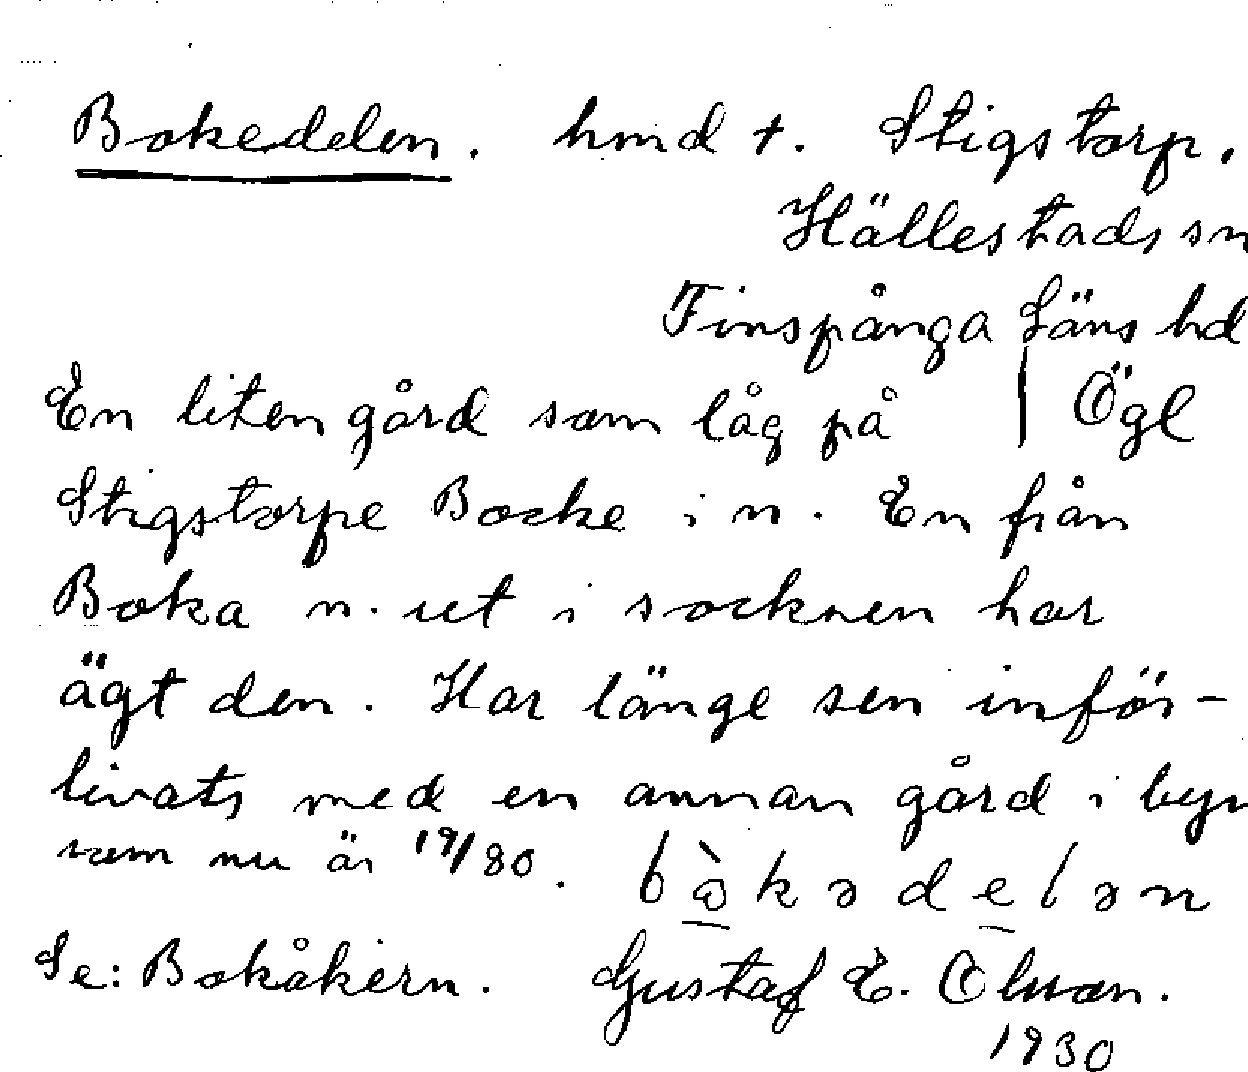 Bokedelen. hmd t. Stigstorp.
Hällestads sn
Finspånga läns hd
En liten gård som låg på | Ögl
Stigstorpe Bocke i n. En från
Boka n. ut i socknen har
ägt den. Har länge sen inför-
livats med en annan gård i byn
som nu är 19/80. bòkədelən
Se: Bokåkern. Gustaf E. Olson.
1930